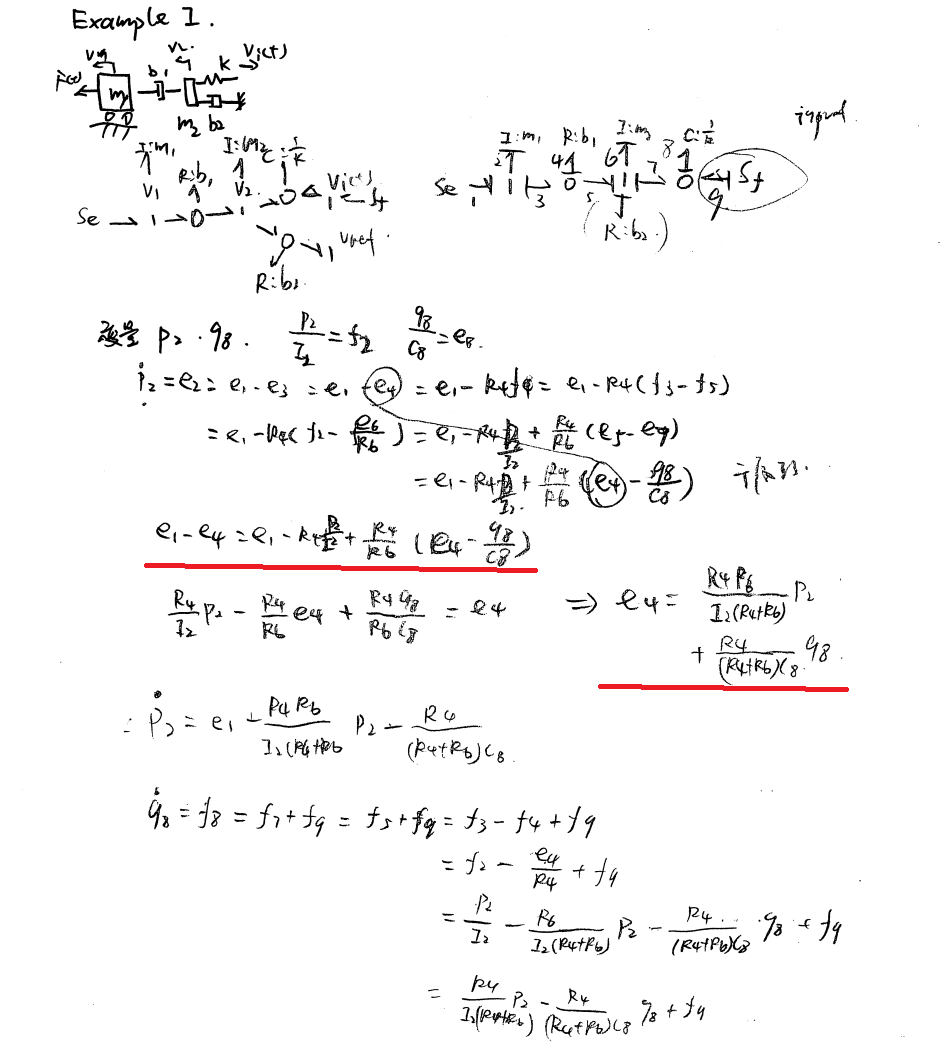 Example I.
Vm V2 Vi(t)
F(t) m1 b1 K
m2 b2
I:m1 I:m2 C:1/K
V1 R:b1 V2 Vi(t)
Se → 1 → 0 → 1 → 0 1 Sf
0 → 1 Vref
R:b2
I:m1 R:b1 I:m2 C:1/K
2 4 6 7 8
Se 1 1 3 0 5 1 0 9 Sf
(R:b2)
变量 P2 · q8. P2/I2 = f2 q8/C8 = e8.
Ṗ2 = e2 = e1 - e3 = e1 - e4 = e1 - R4f4 = e1 - R4(f3 - f5)
= e1 - R4(f2 - e6/R6) = e1 - R4 P2/I2 + R4/R6 (e5 - e7)
= e1 - R4 P2/I2 + R4/R6 (e4 - q8/C8)
e1 - e4 = e1 - R4 P2/I2 + R4/R6 (e4 - q8/C8)
R4/I2 P2 - R4/R6 e4 + R4q8/R6C8 = e4 ⇒ e4 = R4R6/I2(R4+R6) P2
+ R4/(R4+R6)C8 q8.
∴ Ṗ2 = e1 - R4R6/I2(R4+R6 P2 - R4/(R4+R6)C8.
q̇8 = f8 = f7 + f9 = f5 + f9 = f3 - f4 + f9
= f2 - e4/R4 + f9
= P2/I2 - R6/I2(R4+R6) P2 - R4/(R4+R6)C8 · q8 + f9
= R4/I2(R4+R6) P2 - R4/(R4+R6)C8 q8 + f9